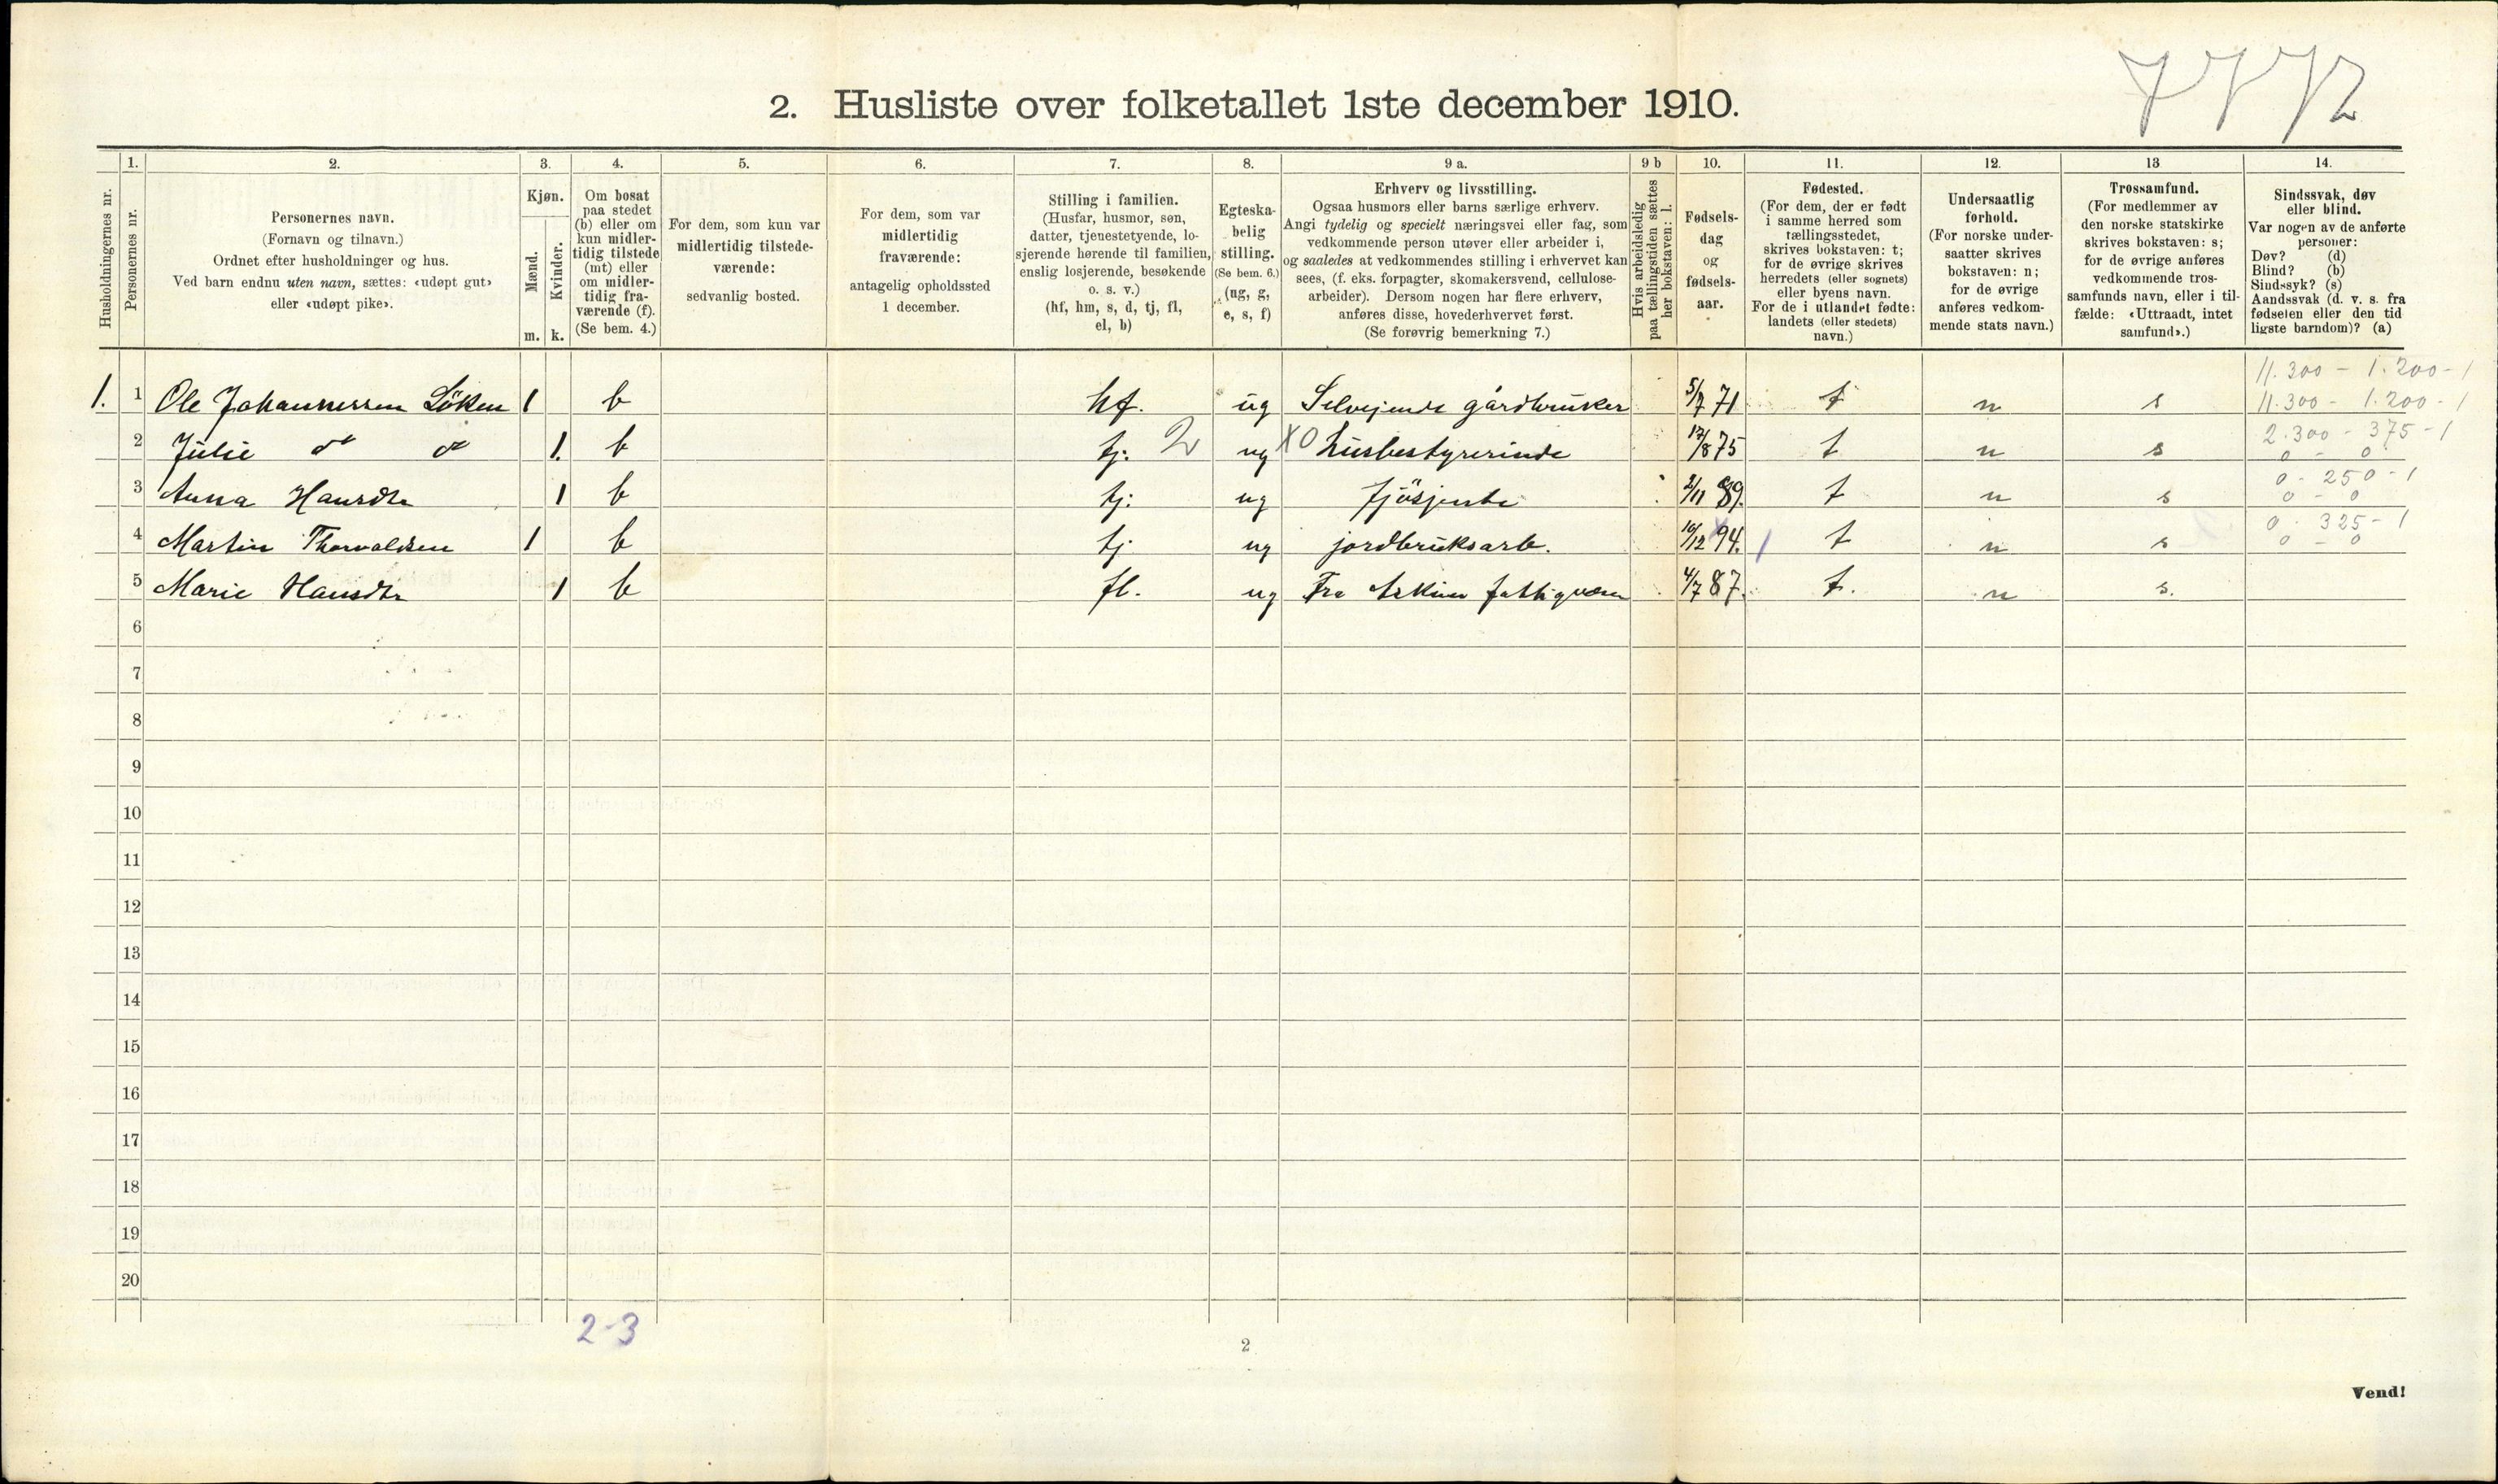 7772
2. Husliste over folketallet 1ste december 1910.
Husholdningernes nr.
1.
Personernes nr.
2.
Personernes navn.
(Fornavn og tilnavn.)
Ordnet efter husholdninger og hus.
Ved barn endnu uten navn, sættes: «udøpt gut»
eller «udøpt pike».
3.
Kjøn.
Mænd.
Kvinder.
m. k.
4.
Om bosat
paa stedet
(b) eller om
kun midler-
tidig tilstede
(mt) eller
om midler-
tidig fra-
værende (f).
(Se bem. 4.)
5.
For dem, som kun var
midlertidig tilstede-
værende:
sedvanlig bosted.
6.
For dem, som var
midlertidig
fraværende:
antagelig opholdssted
1 december.
7.
Stilling i familien.
(Husfar, husmor, søn,
datter, tjenestetyende, lo-
sjerende hørende til familien,
enslig losjerende, besøkende
o. s. v.)
(hf, hm, s, d, tj, fl,
el, b)
8.
Egteska-
belig
stilling.
(Se bem. 6.)
(ug, g,
e, s, f)
9 a.
Erhverv og livsstilling.
Ogsaa husmors eller barns særlige erhverv.
Angi tydelig og specielt næringsvei eller fag, som
vedkommende person utøver eller arbeider i,
og saaledes at vedkommendes stilling i erhvervet kan
sees, (f. eks. forpagter, skomakersvend, cellulose-
arbeider). Dersom nogen har flere erhverv,
anføres disse, hovederhvervet først.
(Se forøvrig bemerkning 7.)
9 b
Hvis arbeidsledig
paa tællingstiden sættes
her bokstaven: l.
10.
Fødsels-
dag
og
fødsels-
aar.
11.
Fødested.
(For dem, der er født
i samme herred som
tællingsstedet,
skrives bokstaven: t;
for de øvrige skrives
herredets (eller sognets)
eller byens navn.
For de i utlandet fødte:
landets (eller stedets)
navn.)
12.
Undersaatlig
forhold.
(For norske under-
saatter skrives
bokstaven: n;
for de øvrige
anføres vedkom-
mende stats navn.)
13
Trossamfund.
(For medlemmer av
den norske statskirke
skrives bokstaven: s;
for de øvrige anføres
vedkommende tros-
samfunds navn, eller i til-
fælde: «Uttraadt, intet
samfund».)
14.
Sindssvak, døv
eller blind.
Var nogen av de anførte
personer:
Døv? (d)
Blind? (b)
Sindssyk? (s)
Aandssvak (d. v. s. fra
fødselen eller den tid
ligste barndom)? (a)
11.300 - 1.200 - 1
1. 1 Ole Johannessen Löken 1 b hf. ug Selvejende gårdbruker 5/7 71 t n s 11.300 - 1.200 - 1
2.300 - 375 - 1
2 Julie do do 1. b tj. 2 ug XO husbestyrerinde 17/8 75 t n s 0 - 0
0 - 250 - 1
3 Anna Hansdtr 1 b tj. ug fjösjente 2/11 89. t n s 0 - 0
0 - 325 - 1
4 Martin Thorvaldsen 1 b tj ug jordbruksarb. 10/12 94. 1 t n s 0 - 0
5 Marie Hansdtr 1 b fl. ug Fra Askim fattigvæsen 4/7 87. t. n s.
6
7
8
9
10
11
12
13
14
15
16
17
18
19
20
2-3
2
Vend!